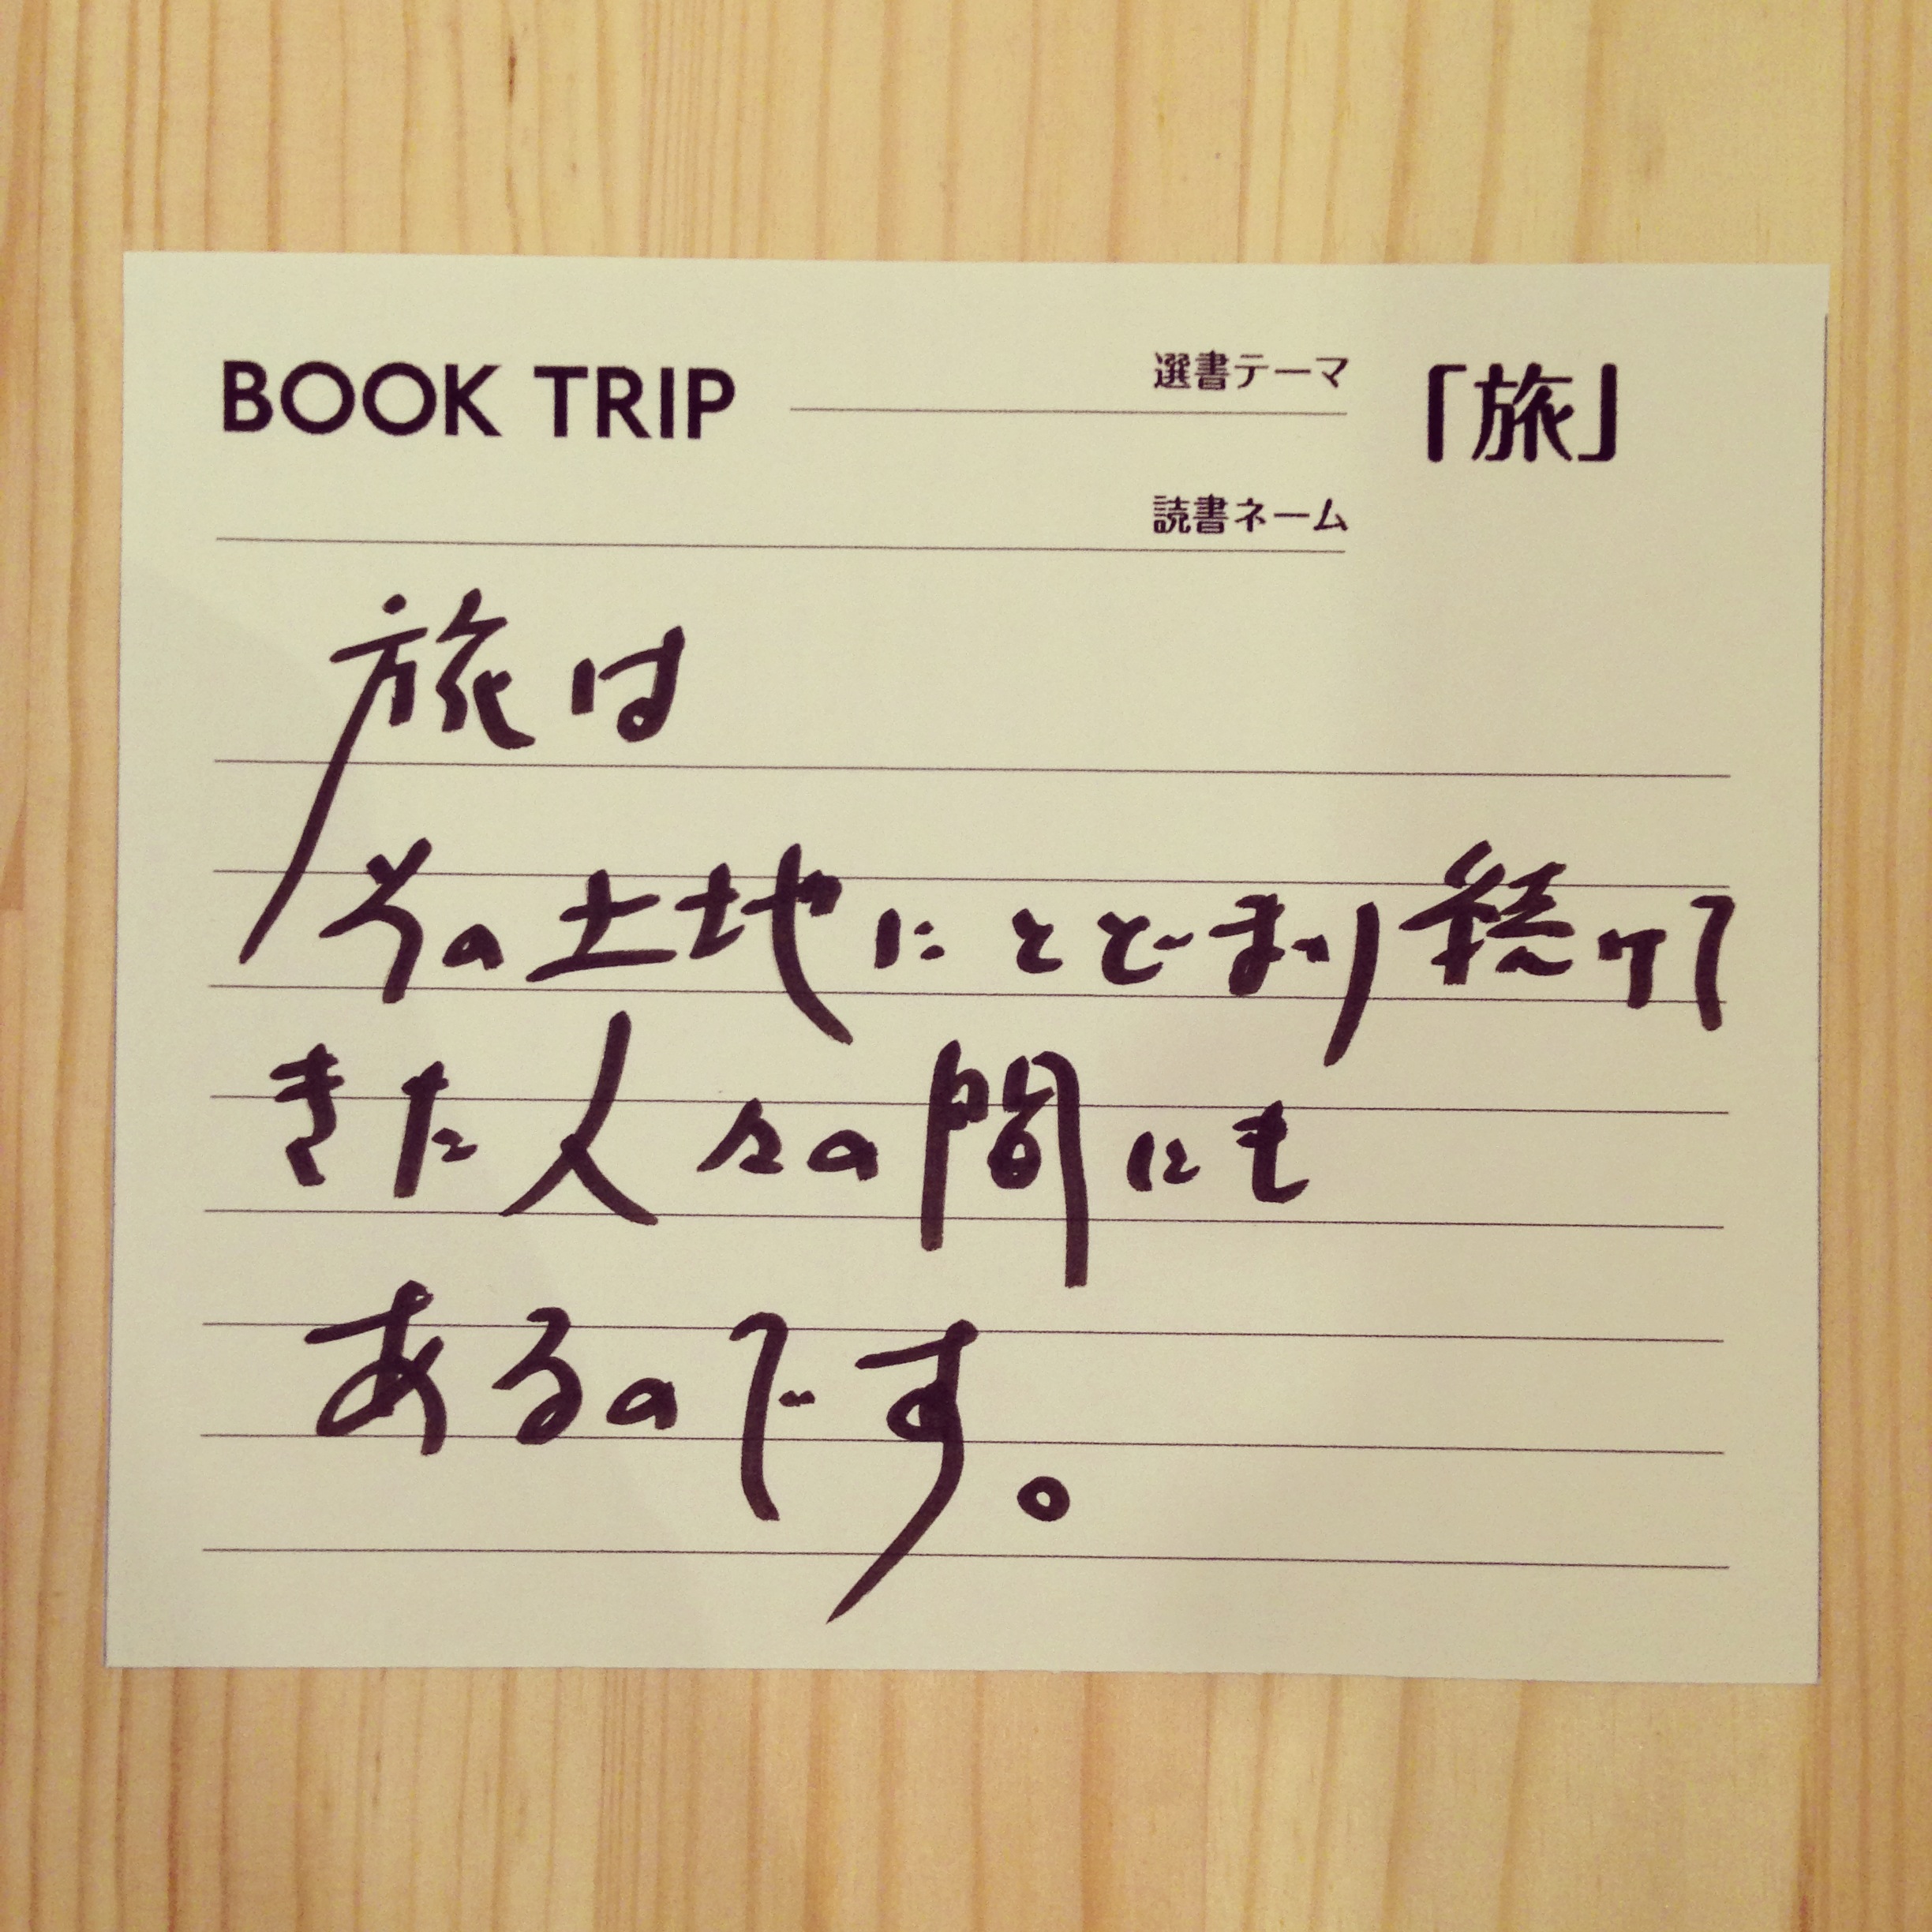 BOOK TRIP
選書テーマ
「旅」
読書ネーム
旅は
その土地にとどまり続けて
きた人々の間にも
あるのです。